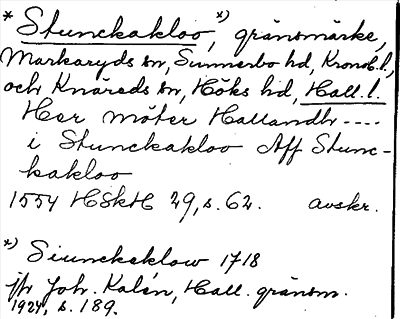 * Stunckakloo, *) gränsmärke,
Markaryds sn, Sunnerbo hd, Kronob. l.,
och Knäreds sn, Höks hd, Hall. l.
Her möter Hallandh ----
i Stunckakloo Aff Stunc-
kakloo
1554 HSkH 29, s. 62. avskr.
*) Siunckaklow 1718
jfr Joh. Kalén, Hall. gränsm.
1924, s. 189.